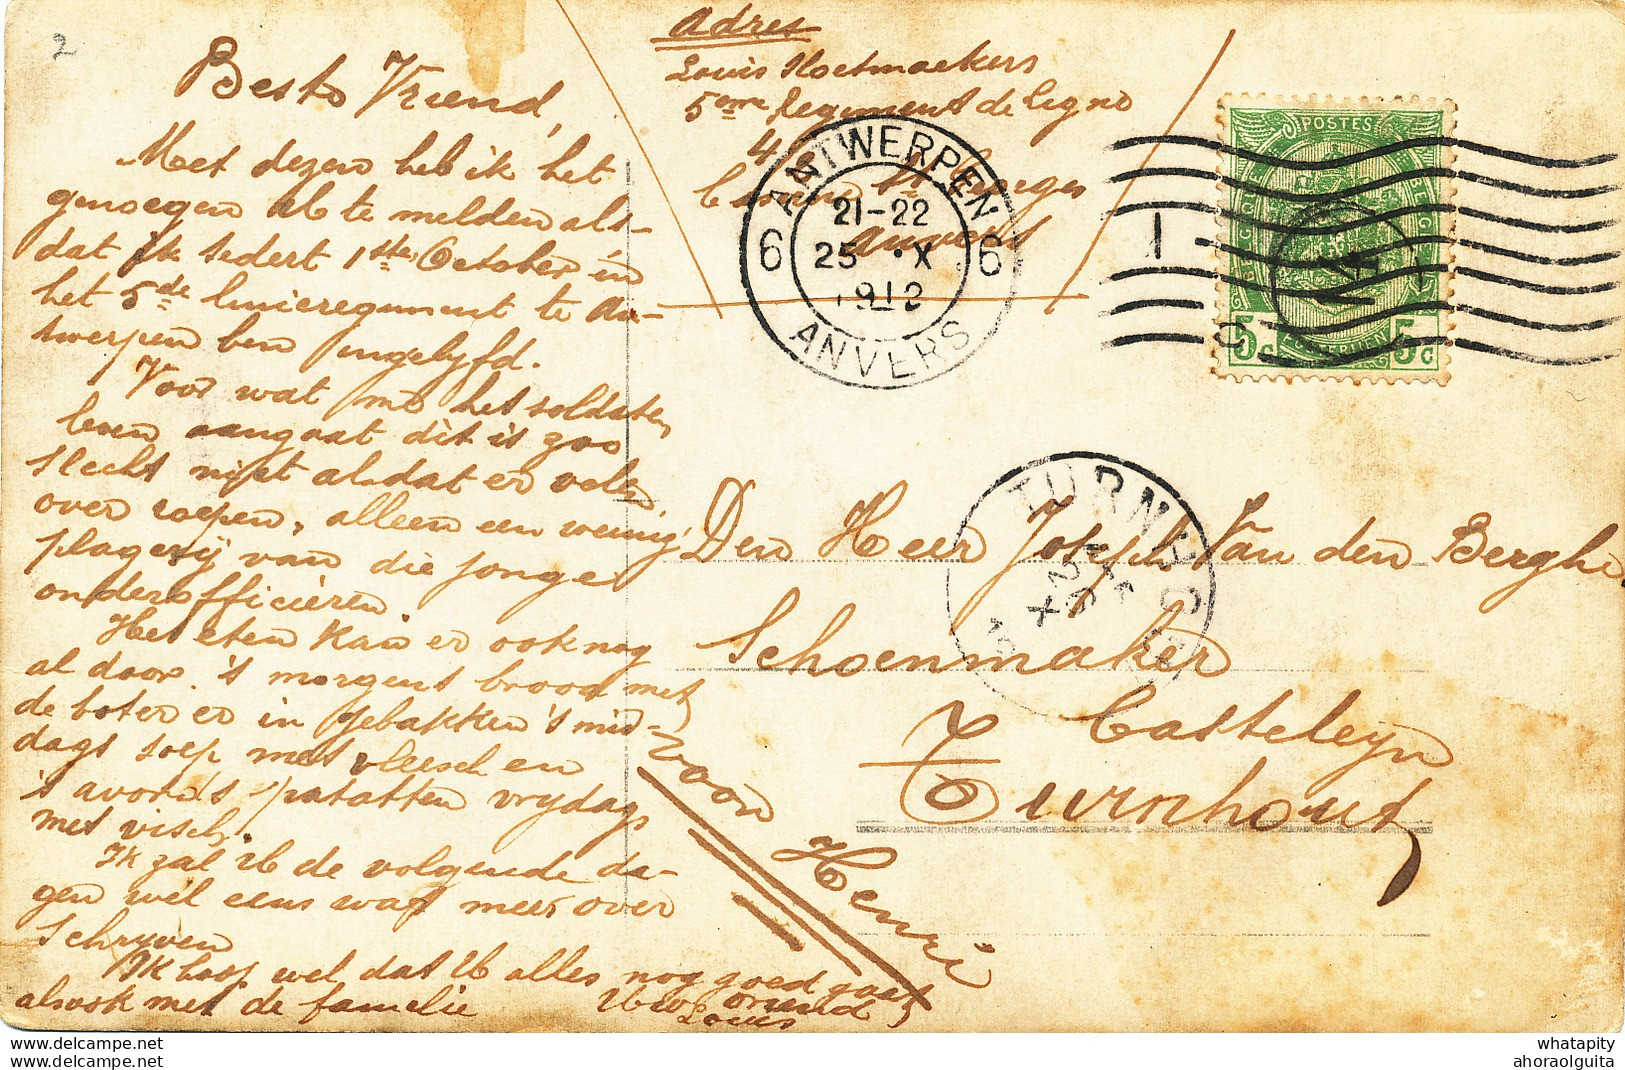 2
Beste Vriend,
Met dezen heb ik het
genoegen Ub te melden als-
dat ik sedert 1ste October in
het 5de linieregiment te An-
twerpen ben ingelyfd.
Voor wat mij het soldaten
leven aangaat dit is zoo
slecht niet als dat er velen
over roepen, alleen een weinig
plagerij van die jonge
onderofficieren.
Het eten kan er ook nog
al door. 's morgens brood met
de boter er in gebakken 's mid-
dags soep met vleesch en
's avonds patatten vrydags
met visch.
Ik zal Ub de volgende da-
gen wel eens wat meer over
schryven
Ik hoop wel dat Ub alles nog goed gaat
alsook met de familie
Ubw vriend
Louis
Adres
Louis Kloetmaekers
5me Regiment de Ligne
4
Georges
Anvers
ANTWERPEN
6 21-22 6
25 • X
1912
ANVERS
1
POSTES
BELGIQUE
BELGIE
14
5c 5c
POSTERIJEN
TURNHOUT
Den Heer Joseph Van den Berghe
Schoenmaker
Casteleyn
Turnhout
voor Henri
whatapity
ahoraolguita
whatapity
ahoraolguita